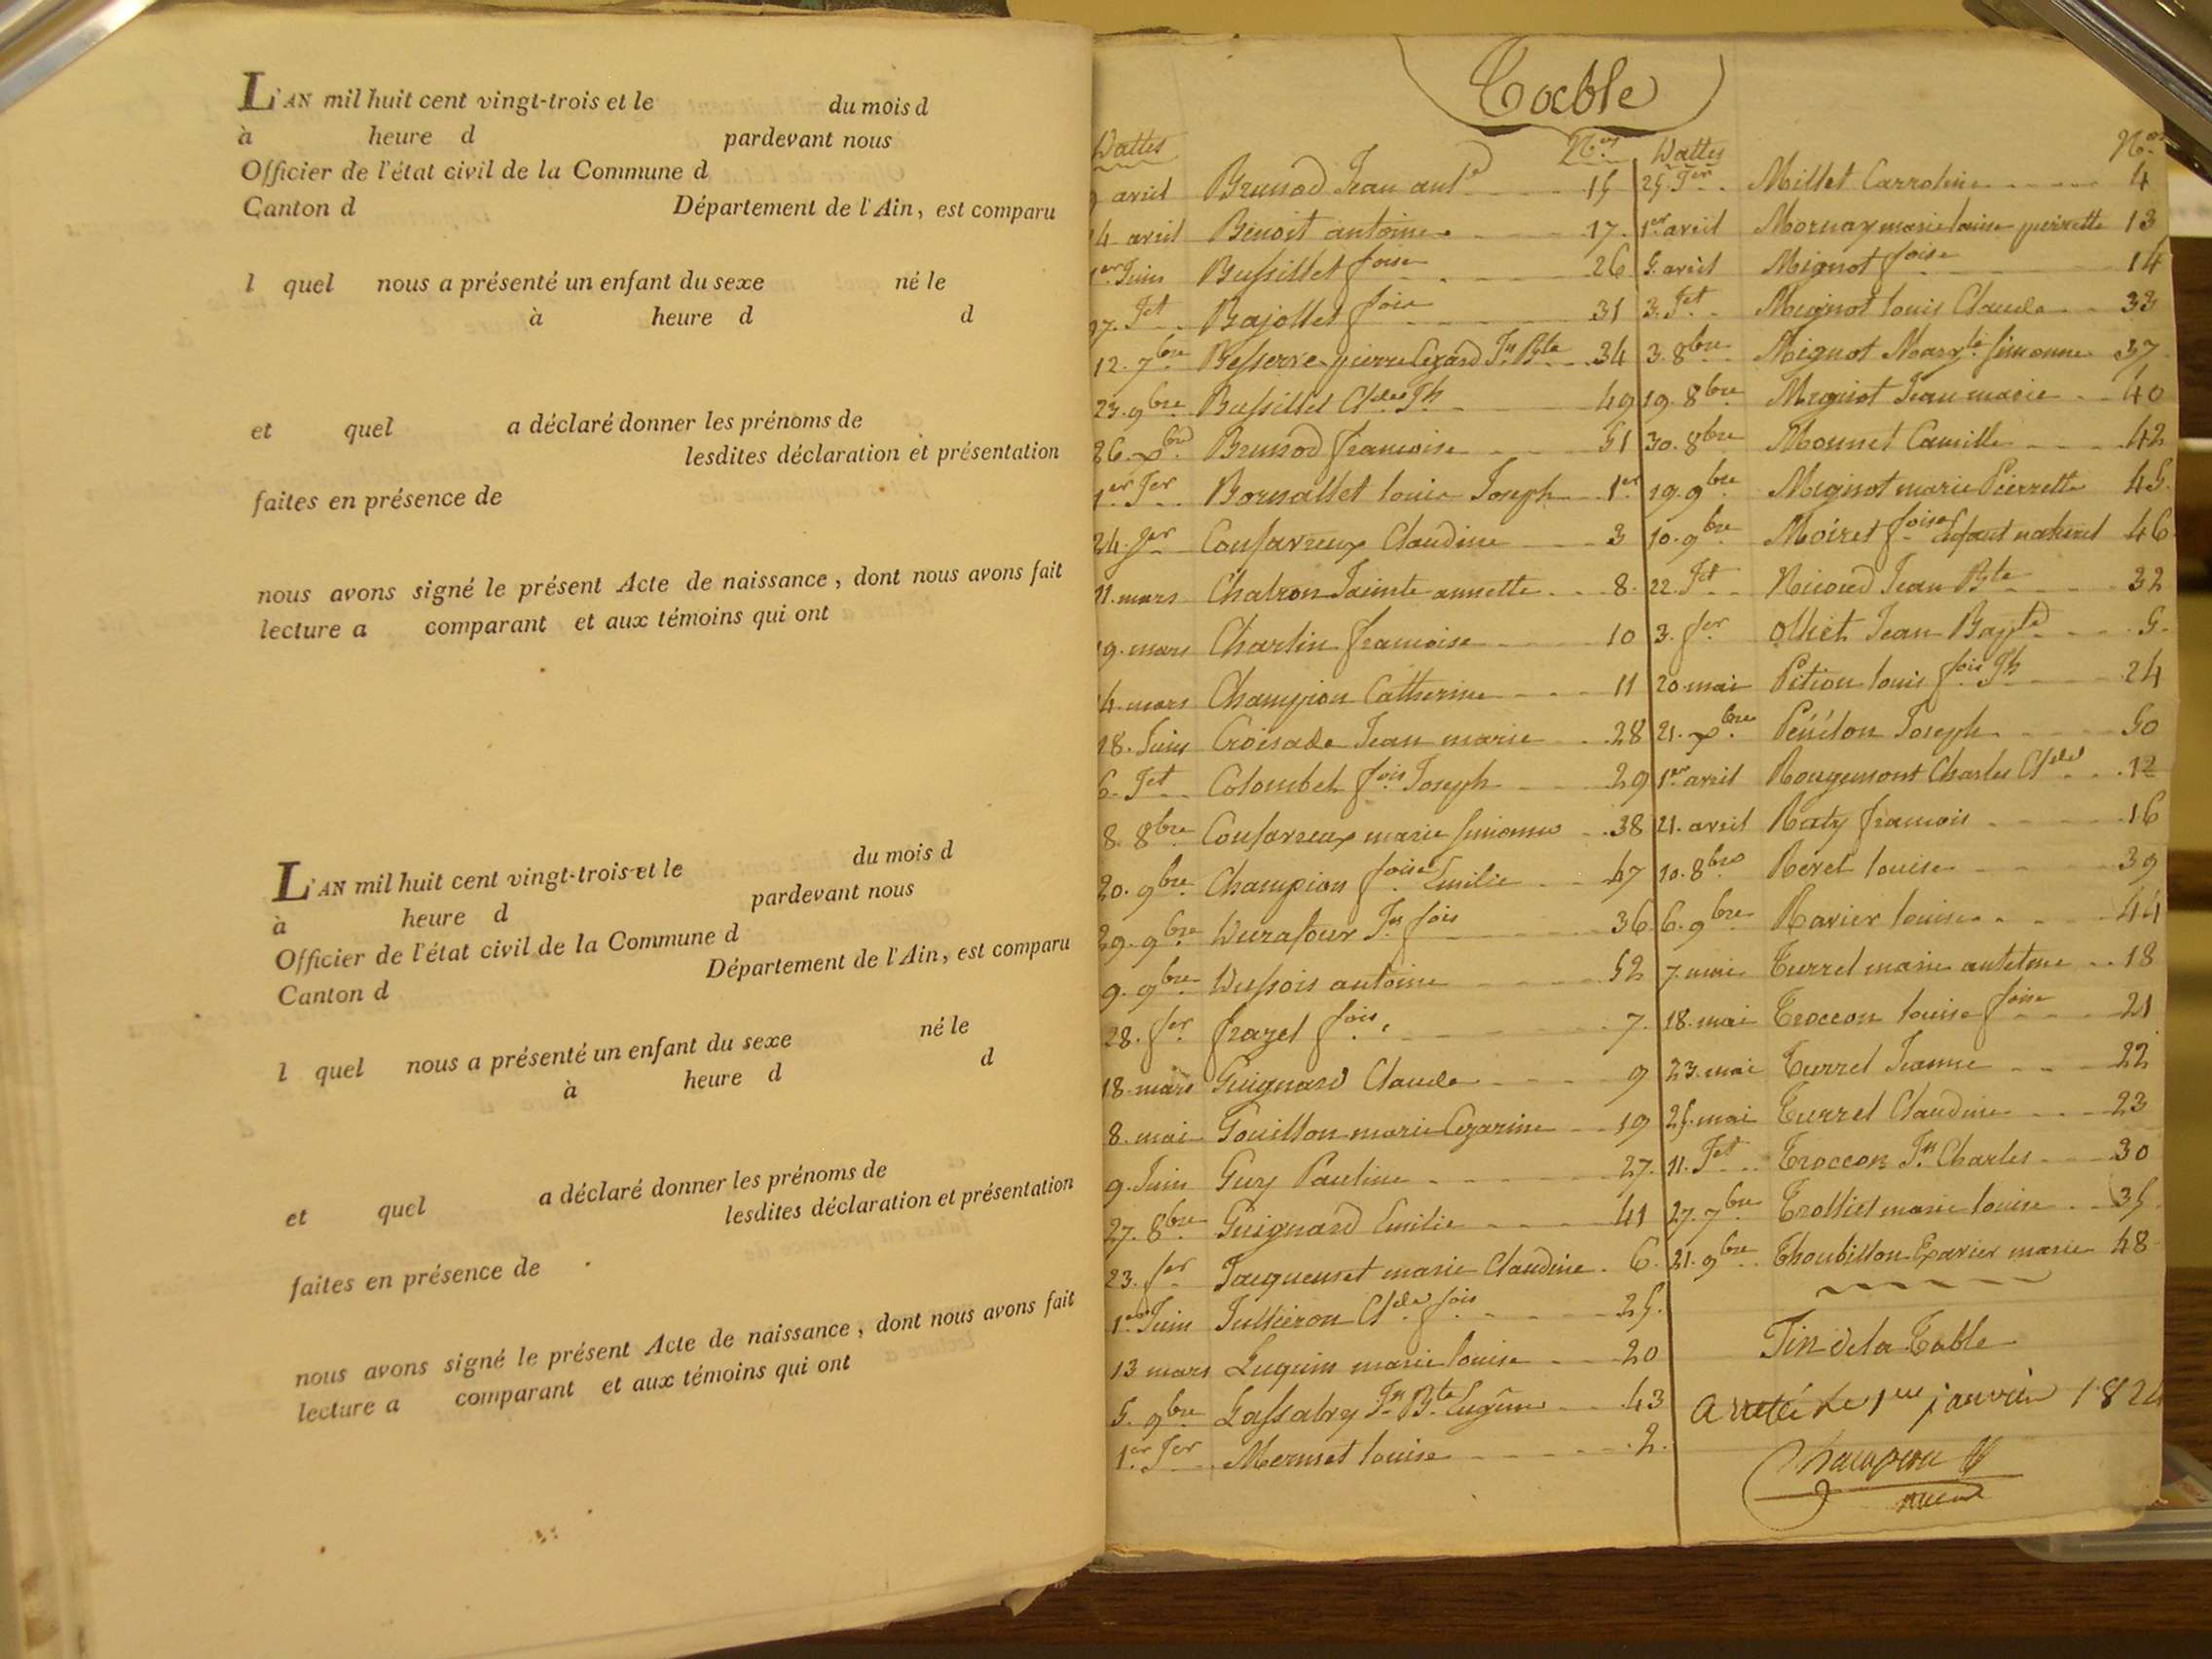 L'AN mil huit cent vingt-trois et le du mois d
à heure d pardevant nous
Officier de l'état civil de la Commune d
Canton d Département de l'Ain, est comparu
l quel nous a présenté un enfant du sexe né le
à heure d d
et quel a déclaré donner les prénoms de
lesdites déclaration et présentation
faites en présence de
nous avons signé le présent Acte de naissance, dont nous avons fait
lecture a comparant et aux témoins qui ont
L'AN mil huit cent vingt-trois et le du mois d
à heure d pardevant nous
Officier de l'état civil de la Commune d
Canton d Département de l'Ain, est comparu
l quel nous a présenté un enfant du sexe né le
à heure d d
et quel a déclaré donner les prénoms de
lesdites déclaration et présentation
faites en présence de
nous avons signé le présent Acte de naissance, dont nous avons fait
lecture a comparant et aux témoins qui ont
Table
Dattes Nos
9 avril Brunod Jean ante 15
4 avril Benoit antoine 17
1er Juin Bussillet foise 26
27. Jet Bajollet foise 31
12. 7bre Besserve pierre Cezard Jn Bte 34
23. 9bre Bussillet Clde Jh 49
26. xbre Brunod francoise 51
1er Jer Bornallet louis Joseph 1er
24. Jer Consavreux Claudine 3
11. mars Chatron Sainte annette 8
19. mars Charlin francoise 10
4. mars Champion Catherine 11
28. Juin Croisade Jean marie 28
6. Jet Colombet fois Joseph 29
8. 8bre Consavreux marie simonne 38
20. 9bre Champion foise Emilie 47
29. 9bre Durafour Jn fois 36
9. 9bre Dussois antoine 52
28. fer frazet fois 7
18. mars Guignard Claude 9
8. mai Gouillon marie Cezarine 19
9. Juin Guy Pauline 27
27. 8bre Guignard Emilie 41
23. fer Jacquemet marie Claudine 6
1er Juin Jullieron Clde fois 25
13 mars Luquin marie louise 20
5. 9bre Lassabry Jn Bte Eugène 43
1er Jer Mermet louise 2
Dattes Nos
25. Jer Millet Carroline 4
1er avril Mornay marie louise pierrette 13
5. avril Mignot foise 14
3. Jet Mignot louis Claude 33
3. 8bre Mignot Margte simonne 37
19. 8bre Mignot Jean marie 40
30. 8bre Monnet Camille 42
19. 9bre Mignot marie Pierrette 45
10. 9bre Moiret foise Enfant naturel 46
22. Jet Nicoud Jean Bte 32
3. fer Olliet Jean Bapte 5
20. mai Pition louis fois Jh 24
21. xbre Pénélon Joseph 50
1er avril Rougemont Charles Clde 12
21. avril Raty francois 16
10. 8bre Revel louise 39
6. 9bre Ravier louise 44
7. mai Turrel marie antelme 18
18. mai Troccon louise foise 21
23. mai Turrel Jeanne 22
25. mai Turrel Claudine 23
11. Jet Troccon Jn Charles 30
27. 7bre Trolliet marie louise 35
21. 9bre Thoubillon Exavier marie 48
Fin de la Table
arretté le 1er janvier 1824
Champion